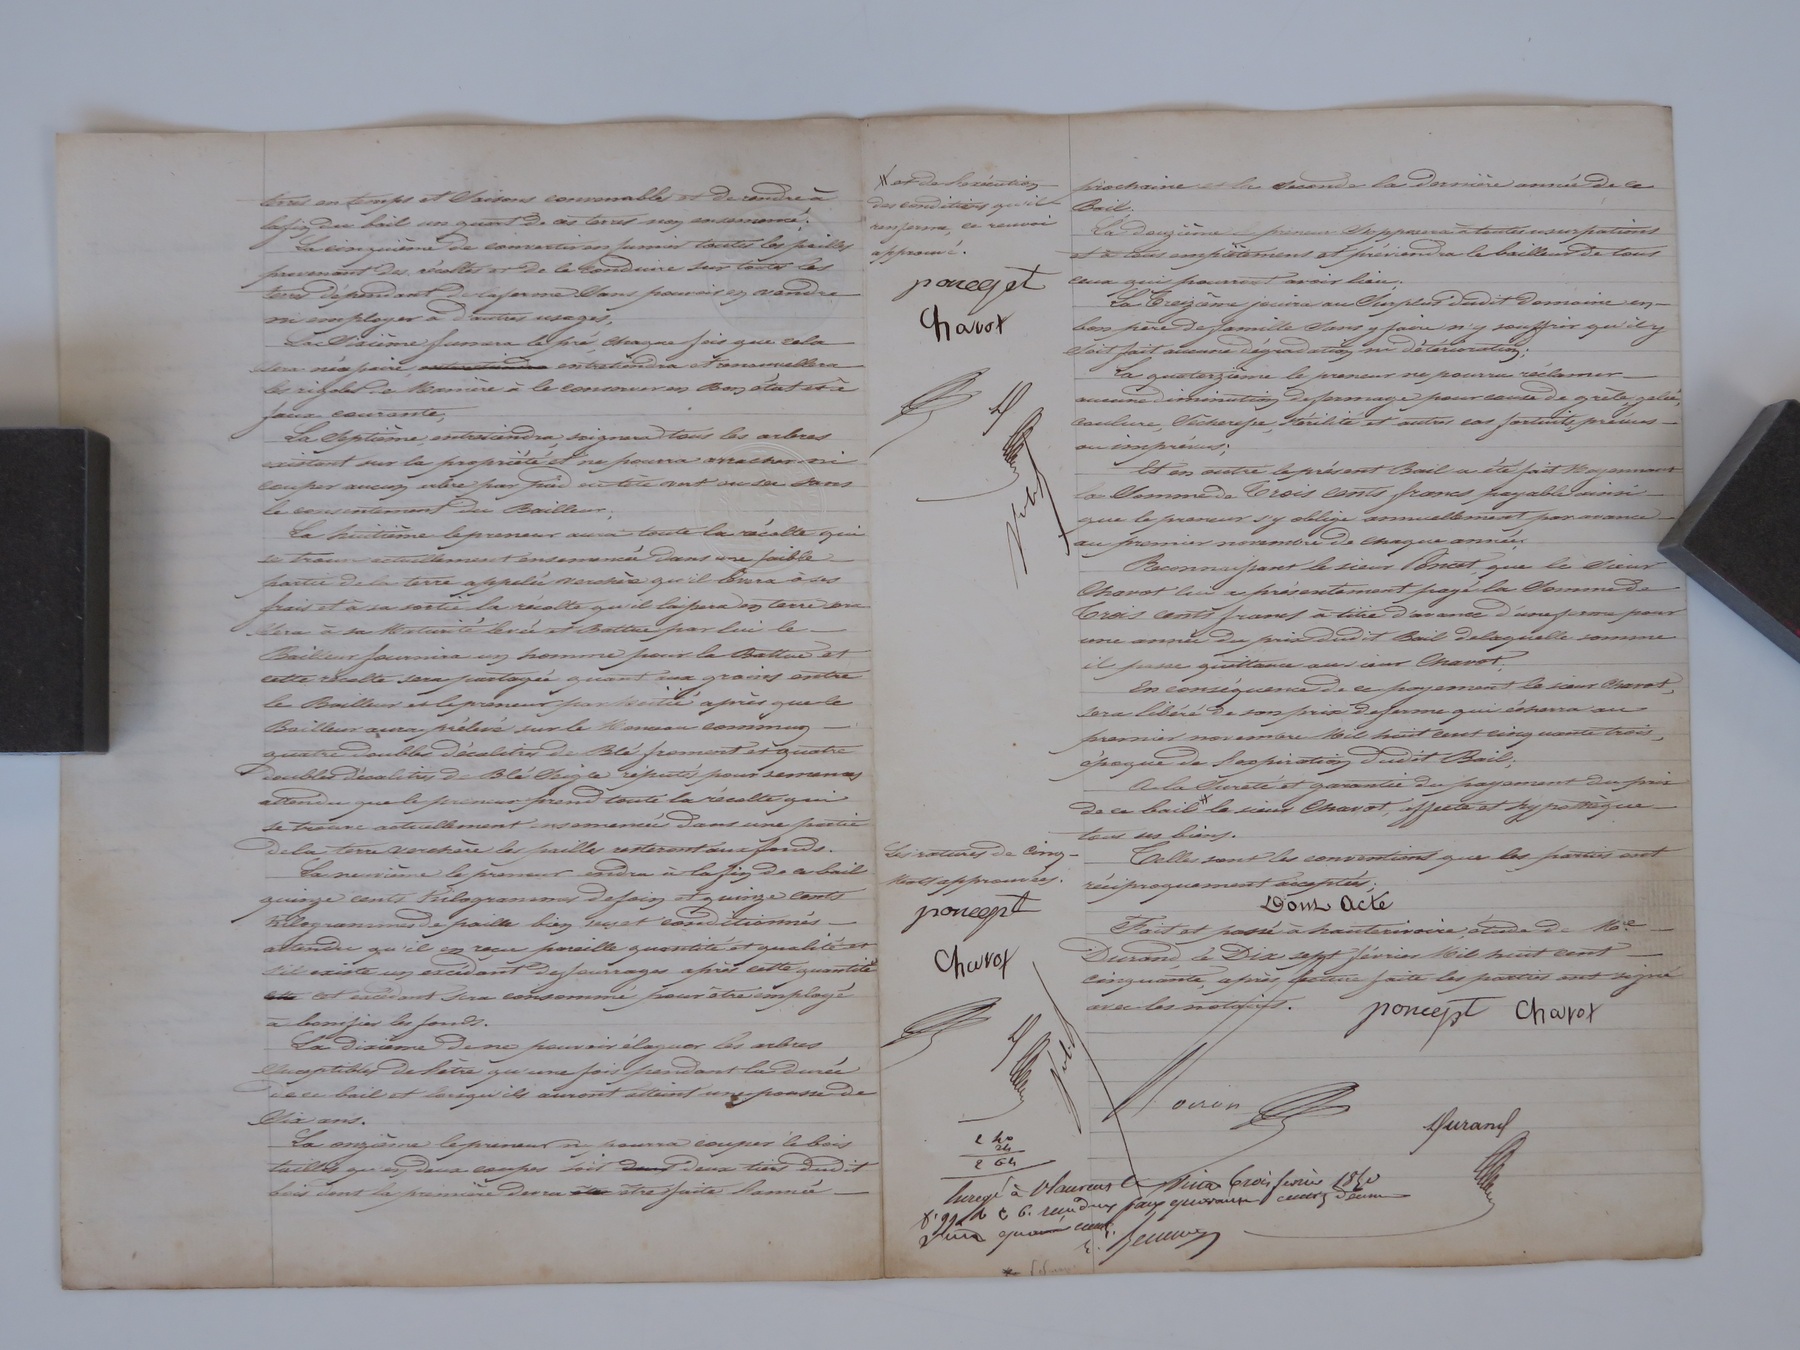 terres en temps et Saisons convenables et de rendre à
la fin du bail un quart de ces terres non ensemencé.
La cinquième de convertir en fumier toutes les pailles
provenant des récoltes et de le conduire sur toutes les
terres dépendant de la ferme Sans pouvoir en vendre
ni employer à d'autres usages,
La Sixième fumera le pré, chaque fois que cela
sera nécessaire entretiendra et renouvellera
les rigoles de Manière à le conserver en Bon état et à
faux courante,
La Septième, entretiendra, soignera tous les arbres
existant sur la propriété et ne pourra arracher ni
couper aucun arbre par pied ou tête vert ou sec sans
le consentement du Bailleur,
La huitième le preneur aura toute la récolte qui
se trouve actuellement ensemencée dans une faible
partie de la terre appelée verchère qu'il lèvera à ses
frais et à sa sortie la récolte qu'il laissera en terre
sera à sa Maturité levée et Battue par lui le
Bailleur fournira un homme pour la Battue et
cette récolte sera partagée quant aux grains entre
le Bailleur et le preneur par Moitié après que le
Bailleur aura prélevé sur le Monceau commun
quatre double décalitres de Blé froment et quatre
doubles décalitres de Blé Seigle réputés pour semences
attendu que le preneur prend toute la récolte qui
se trouve actuellement ensemencée dans une partie
de la terre verchère les pailles resteront aux fonds.
La neuvième le preneur rendra à la fin de ce bail
quinze cents Kilogrammes de foin et quinze cents
Kilogrammes de paille bien conditionnés
attendu qu'il en reçu pareille quantité et qualité et
s'il existe un excédant de fourrages après cette quantité
cet excédant sera consommé pour être employé
a bonifier les fonds.
La dixième de ne pouvoir élaguer les arbres
susceptibles de l'être qu'une fois pendant la durée
de ce bail et lorsqu'ils auront atteint une pousse de
Six ans.
La onzième le preneur ne pourra couper le bois
taillis qu'en deux coupes soit deux tiers dudit
bois dont la première devra être faite l'année
# et de l'exécution
des conditions qu'il
renferme, ce renvoi
approuvé.
poncept
Chavot
Les ratures de cinq
Mots approuvées.
poncept
Chavot
2 40
24
2 64
prochaine et la seconde la dernière année de ce
Bail.
La douzième le preneur s'opposera à toutes usurpations
et à tous empiètements et préviendra le bailleur de tous
ceux qui pourront avoir lieu.
La Treizième jouira au Surplus dudit domaine en
bon père de famille Sans y faire n'y souffrir qu'il y
Soit fait aucune dégradation ni détérioration.
La quatorzième le preneur ne pourra réclamer
aucune diminution de fermage pour cause de grêle, gelée,
coulure, Sécheresse, stérilité et autres cas fortuits, prévus
ou imprévus;
Et en outre le présent Bail a été fait Moyennant
la Somme de Trois cents francs payable ainsi
que le preneur s'y oblige annuellement par avance
au premier novembre de chaque année.
Reconnaissant le sieur Poncet, que le Sieur
Chavot lui a présentement payé la Somme de
Trois cents francs à titre d'avance d'une ferme pour
une année du prix dudit Bail de laquelle somme
il passe quittance au sieur Chavot.
En conséquence de ce payement le sieur Chavot,
sera libéré de son prix de ferme qui écherra au
premier novembre Mil huit cent cinquante trois,
époque de l'expiration dudit Bail.
A la Sureté et garantie du payement du prix
de ce bail # le sieur Chavot, affecte et hypothèque
tous ses biens.
Telles sont les conventions que les parties ont
réciproquement acceptées.
Dont Acte
Fait et passé à hauterivoire étude de Me
Durand le Dix sept février Mil huit cent
cinquante, après lecture faite les parties ont signé
avec les notaires.
poncept Chavot
Durand
Enregé à St Laurent le vingt trois février 1850